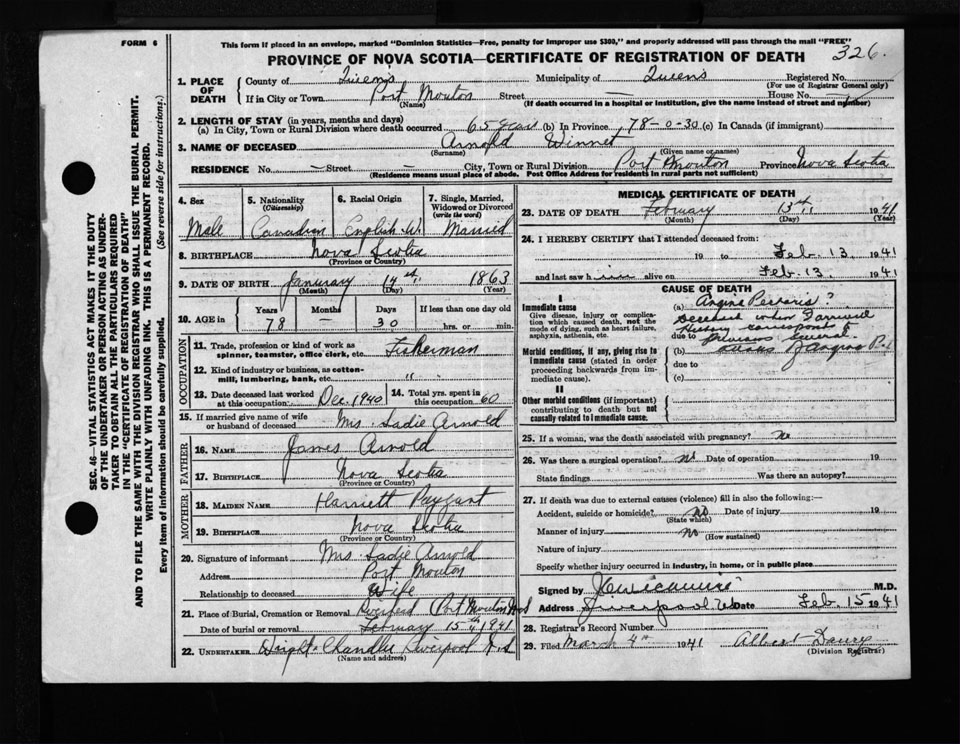 FORM 6
This form if placed in an envelope, marked "Dominion Statistics—Free, penalty for improper use $300," and properly addressed will pass through the mail "FREE"
PROVINCE OF NOVA SCOTIA—CERTIFICATE OF REGISTRATION OF DEATH 326.
1. PLACE OF DEATH
County of Queens Municipality of Queens Registered No.
(For use of Registrar General only)
If in City or Town Port Mouton Street — House No. —
(Name) (If death occurred in a hospital or institution, give the name instead of street and number)
2. LENGTH OF STAY (in years, months and days)
(a) In City, Town or Rural Division where death occurred 65 years (b) In Province 78-0-30 (c) In Canada (if immigrant)
3. NAME OF DECEASED Arnold Winnet
(Surname) (Given name or names)
RESIDENCE No. — Street — City, Town or Rural Division Port Mouton Province Nova Scotia
(Residence means usual place of abode. Post Office Address for residents in rural parts not sufficient)
4. Sex
Male
5. Nationality
(Citizenship)
Canadian
6. Racial Origin
English W
7. Single, Married, Widowed or Divorced
(write the word)
Married
8. BIRTHPLACE Nova Scotia
(Province or Country)
9. DATE OF BIRTH January 14th 1863
(Month) (Day) (Year)
10. AGE in
Years Months Days If less than one day old
78 — 30 hrs. or min.
OCCUPATION
11. Trade, profession or kind of work as spinner, teamster, office clerk, etc. Fisherman
12. Kind of industry or business, as cotton-mill, lumbering, bank, etc. "
13. Date deceased last worked at this occupation: Dec. 1940
14. Total yrs. spent in this occupation 60
15. If married give name of wife or husband of deceased Mrs. Sadie Arnold
FATHER
16. NAME James Arnold
17. BIRTHPLACE Nova Scotia
(Province or Country)
MOTHER
18. MAIDEN NAME Harriett
19. BIRTHPLACE Nova Scotia
(Province or Country)
20. Signature of informant Mrs. Sadie Arnold
Address Port Mouton
Relationship to deceased Wife
21. Place of Burial, Cremation or Removal Port Mouton N.S
Date of burial or removal February 15th 1941
22. UNDERTAKER Chandler Liverpool N.S
(Name and address)
MEDICAL CERTIFICATE OF DEATH
23. DATE OF DEATH February 13th 1941
(Month) (Day) (Year)
24. I HEREBY CERTIFY that I attended deceased from:
19 to Feb. 13 1941
and last saw him alive on Feb. 13 1941
CAUSE OF DEATH
I
Immediate cause
Give disease, injury or complication which caused death, not the mode of dying, such as heart failure, asphyxia, asthenia, etc.
Morbid conditions, if any, giving rise to immediate cause (stated in order proceeding backwards from immediate cause).
II
Other morbid conditions (if important) contributing to death but not causally related to immediate cause.
(a) Angina Pectoris ?
deceased when I arrived
History
due to previous several
(b) attacks of Angina P.
due to
(c)
25. If a woman, was the death associated with pregnancy? no
26. Was there a surgical operation? no Date of operation 19
State findings Was there an autopsy?
27. If death was due to external causes (violence) fill in also the following:—
Accident, suicide or homicide? no Date of injury 19
(State which)
Manner of injury no
(How sustained)
Nature of injury
Specify whether injury occurred in industry, in home, or in public place
Signed by M.D.
Address Liverpool N.S Date Feb. 15 1941
28. Registrar's Record Number
29. Filed March 4th 1941 Albert
(Division Registrar)
SEC. 46—VITAL STATISTICS ACT MAKES IT THE DUTY
OF THE UNDERTAKER OR PERSON ACTING AS UNDER-
TAKER TO OBTAIN ALL THE PARTICULARS REQUIRED
IN THE "CERTIFICATE OF REGISTRATION OF DEATH"
AND TO FILE THE SAME WITH THE DIVISION REGISTRAR WHO SHALL ISSUE THE BURIAL PERMIT.
WRITE PLAINLY WITH UNFADING INK. THIS IS A PERMANENT RECORD.
Every item of information should be carefully supplied. (See reverse side for instructions.)